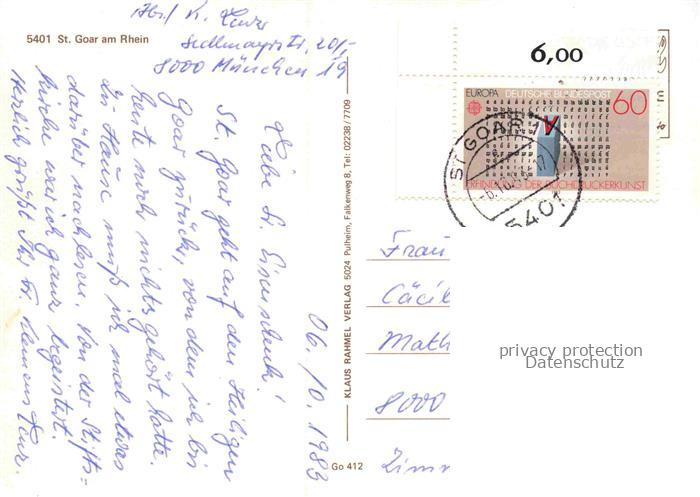 5401 St. Goar am Rhein
Abs./ K. Lenz
Sedlmayrstr. 20/-
8000 München 19
06.10.1983
Liebe Fr. Eisenschenk!
St. Goar geht auf den Heiligen
Goar zurück, von dem ich bis
heute noch nichts gehört hatte.
Zu Hause muß ich mal etwas
darüber nachlesen. Von der Stifts=
kirche war ich ganz begeistert.
Herzlich grüßt Ihr
KLAUS RAHMEL VERLAG 5024 Pulheim, Falkenweg 8, Tel: 02238/7709
Go 412
6,00
EUROPA DEUTSCHE BUNDESPOST 60
ERFINDUNG DER BUCHDRUCKERKUNST
ST GOAR
5401
Frau
Cäcil
Math
8000
Zimr
privacy protection
Datenschutz